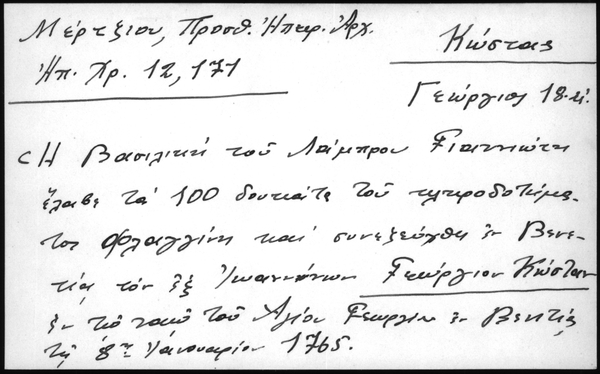 Μέρτζιου, Προσθ. Ἠπειρ. Ἀρχ.
Ἠπ. Χρ. 12, 171
Κώστας
Γεώργιος 18.αἰ.
«Ἡ Βασιλική τοῦ Λάμπρου Γιαννιώτη
ἔλαβε τά 100 δουκάτα τοῦ κληροδοτήμα-
τος Φλαγγίνη καί συνεζεύχθη ἐν Βενε-
τίᾳ τόν ἐξ Ἰωαννίνων Γεώργιον Κώσταν
ἐν τῷ ναῷ τοῦ Ἁγίου Γεωργίου ἐν Βενετίᾳ
τῇ 8ῃ Ἰανουαρίου 1765.